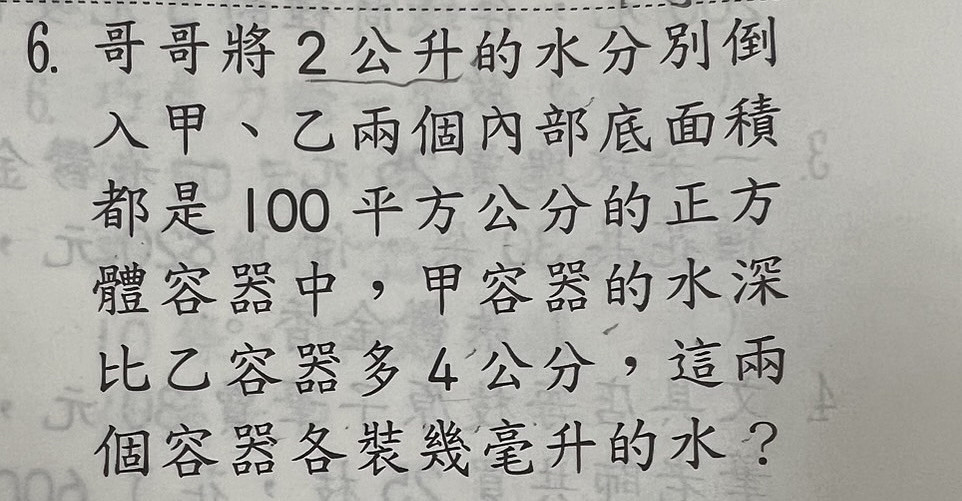 6. 哥哥將2公升的水分別倒
入甲、乙兩個內部底面積
都是100平方公分的正方
體容器中，甲容器的水深
比乙容器多4公分，這兩
個容器各裝幾毫升的水？